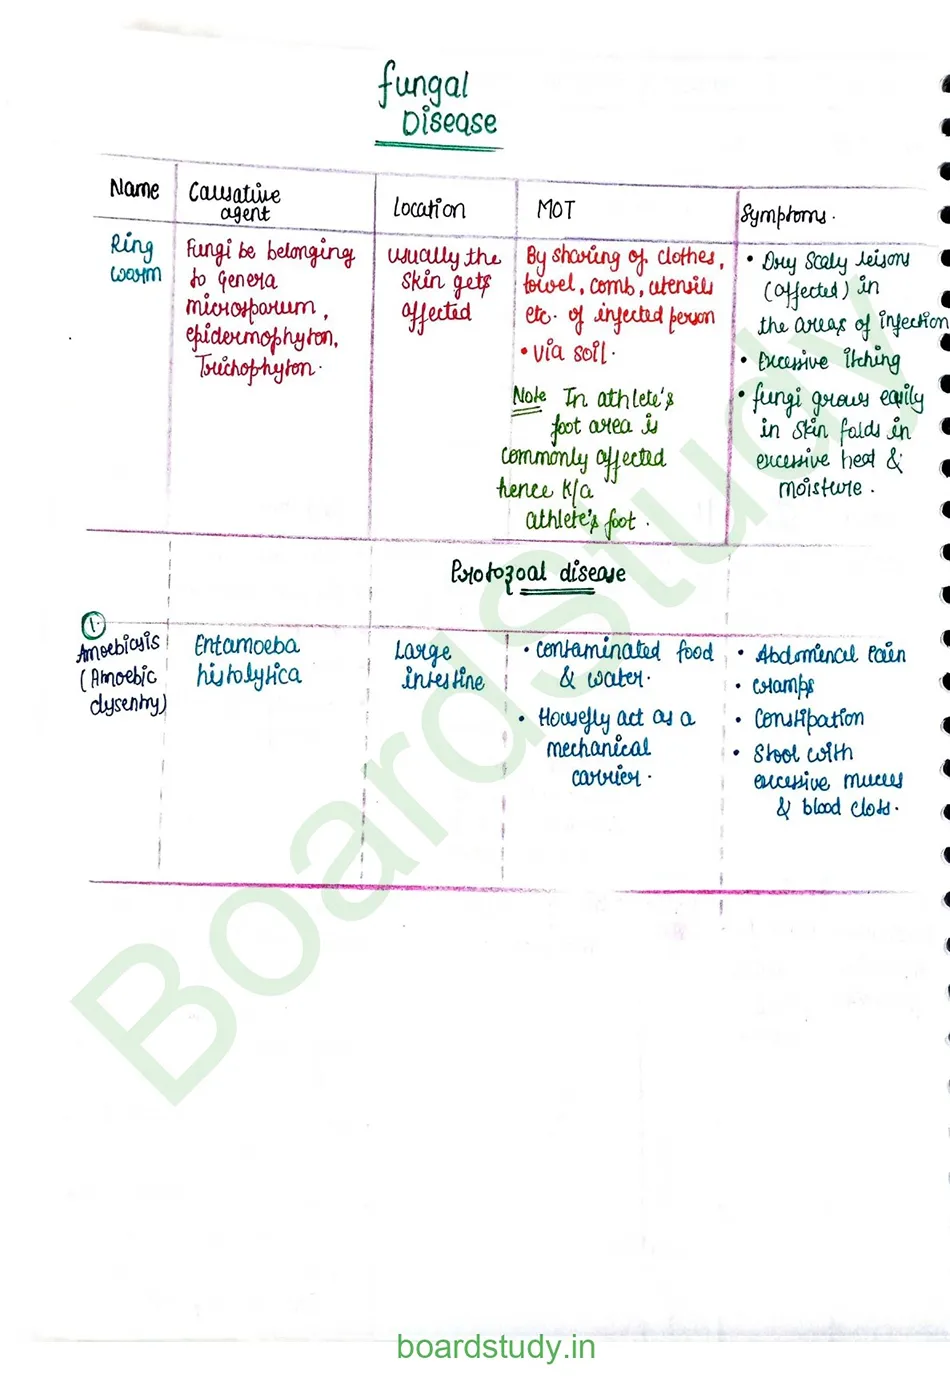 fungal
Disease
Name
Causative
agent
Location
MOT
Symptoms.
Ring
worm
Fungi be belonging
to Genera
microsporum,
epidermophyton,
Trichophyton.
usually the
skin gets
affected
By sharing of clothes,
towel, comb, utensils
etc. of infected person
• via soil.
Note In athlete's
foot area is
commonly affected
hence K/a
athlete's foot.
• Dry Scaly leisons
(affected) in
the areas of infection
• Excessive itching
• fungi grows easily
in skin folds in
excessive heat &
moisture.
Protozoal disease
1.
Amoebiasis
(Amoebic
dysentry)
Entamoeba
histolytica
Large
intestine
• Contaminated food
& water.
• Housefly act as a
mechanical
carrier.
• Abdominal Pain
• cramps
• Constipation
• Stool with
excessive mucus
& blood clots.
BoardStudy
boardstudy.in